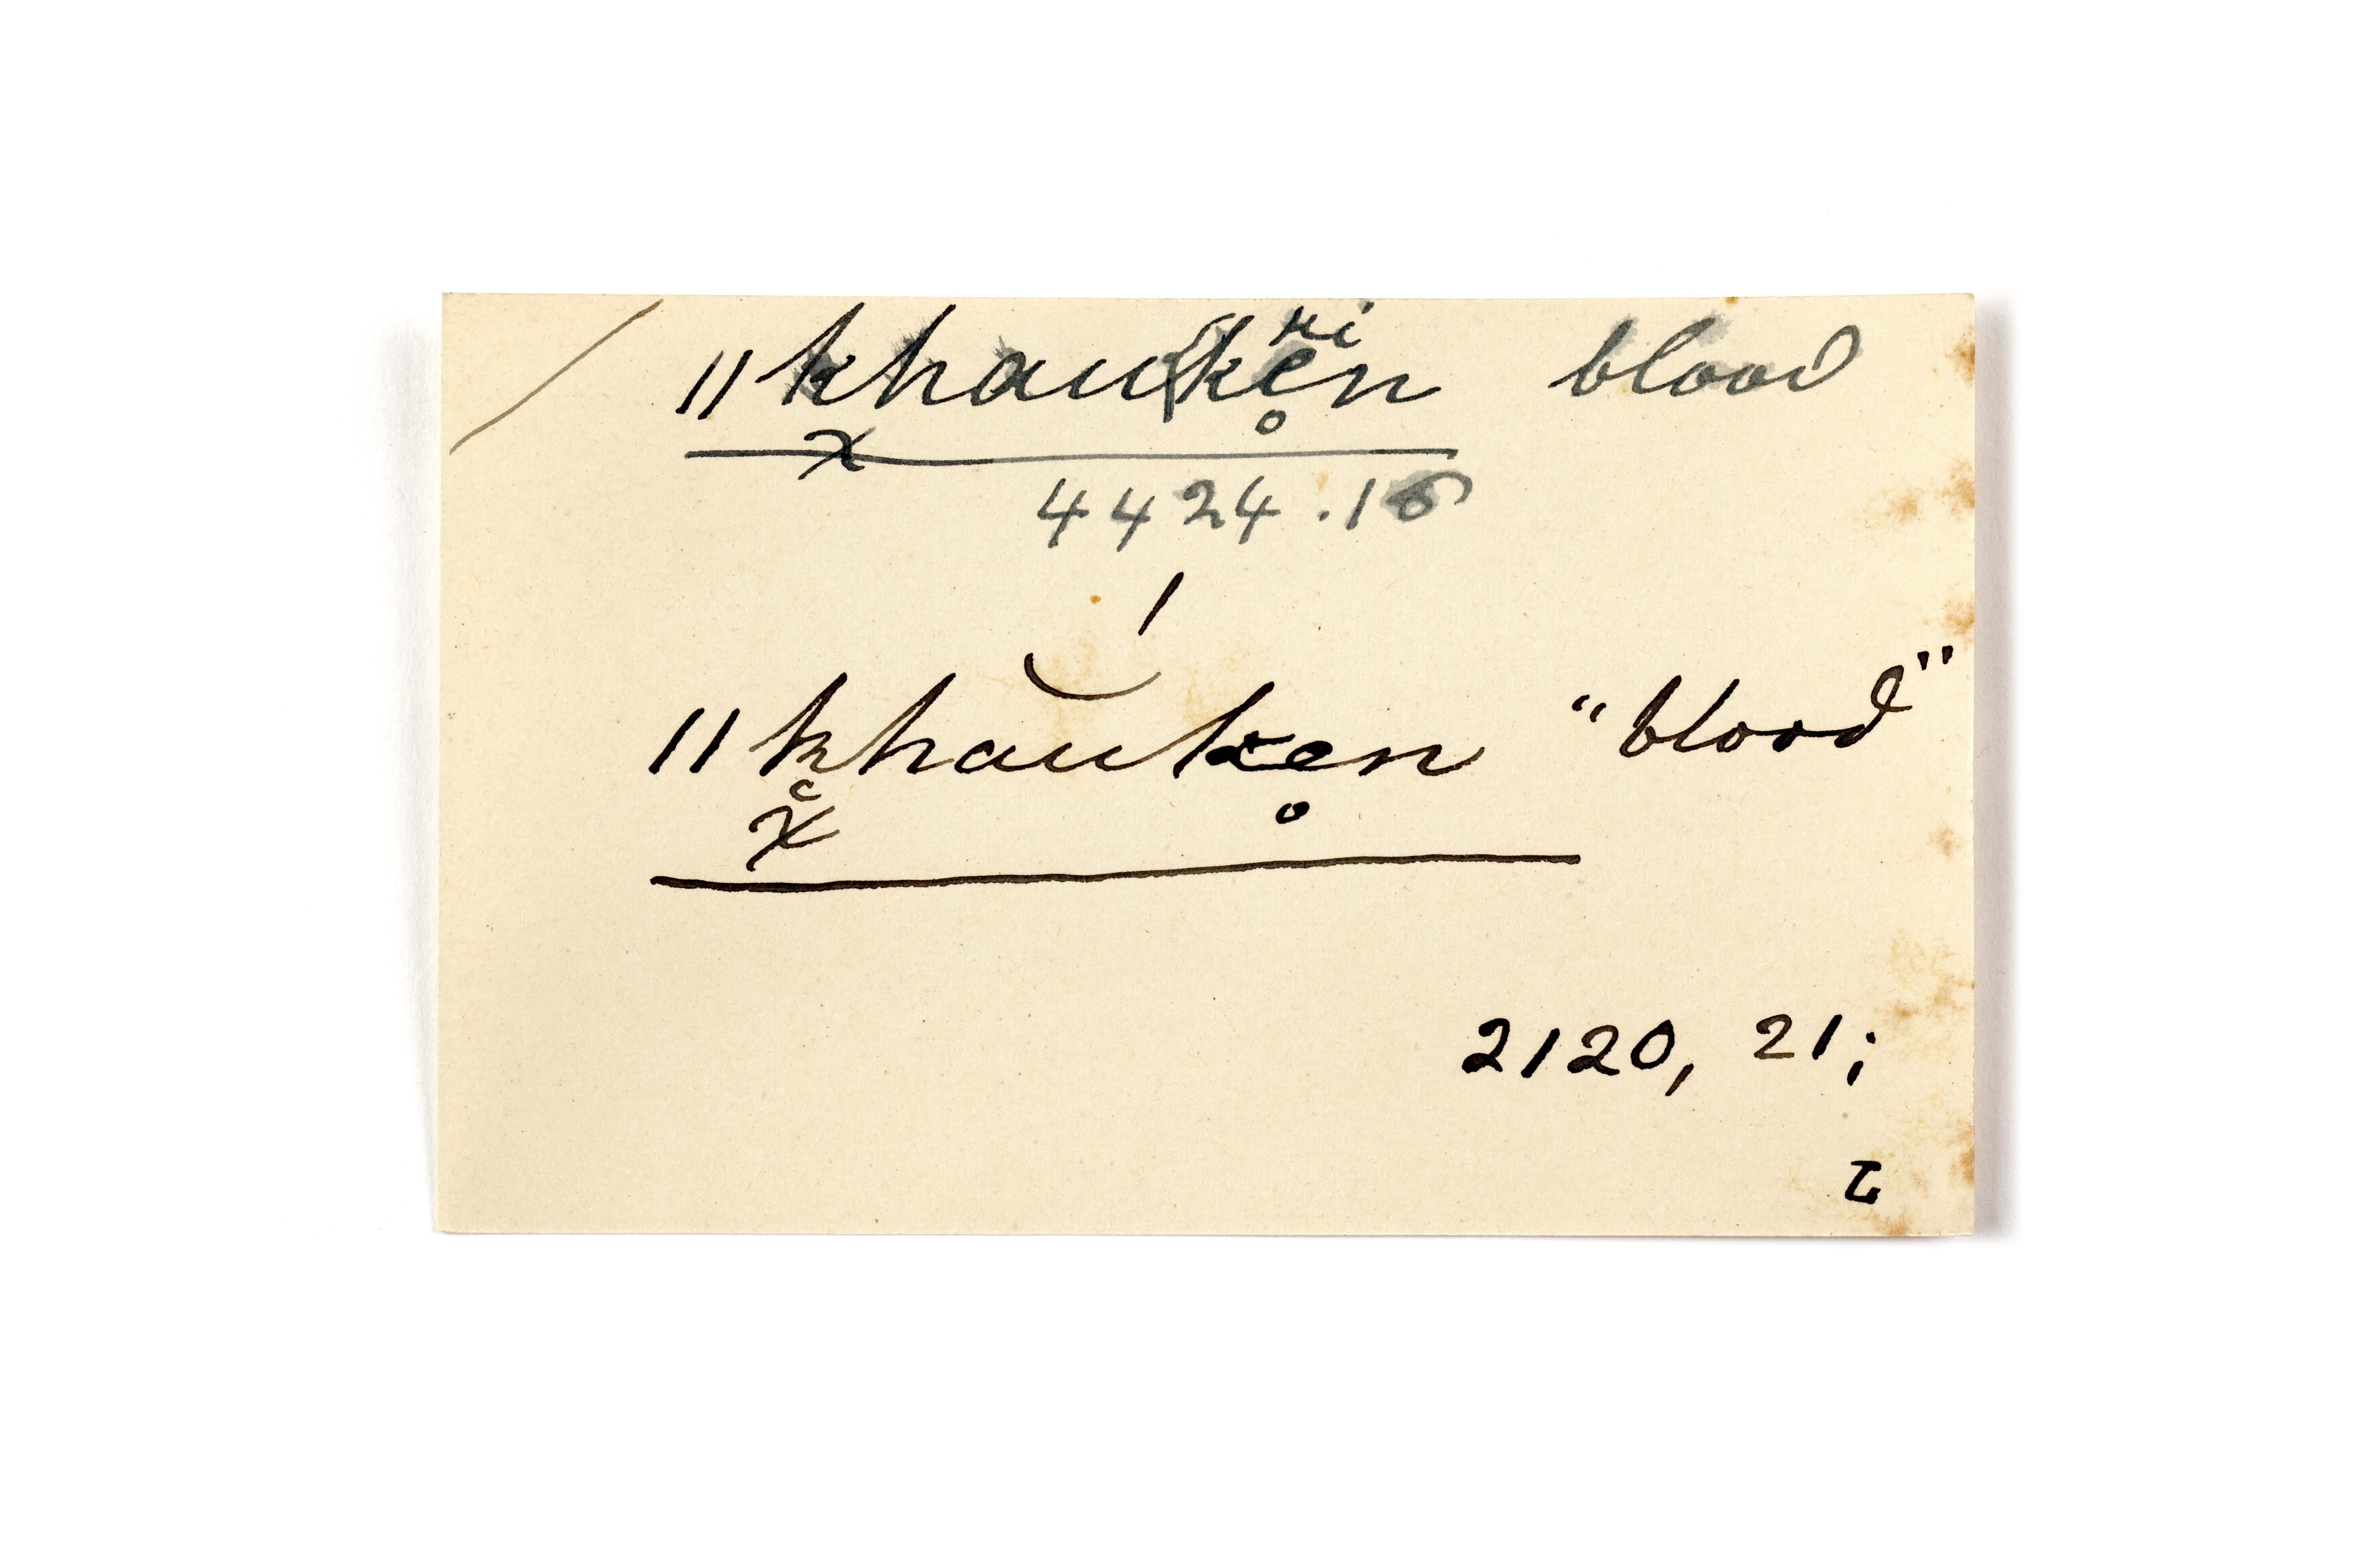 ||khauken blood
4424.16
||khauken "blood"
2120, 21;